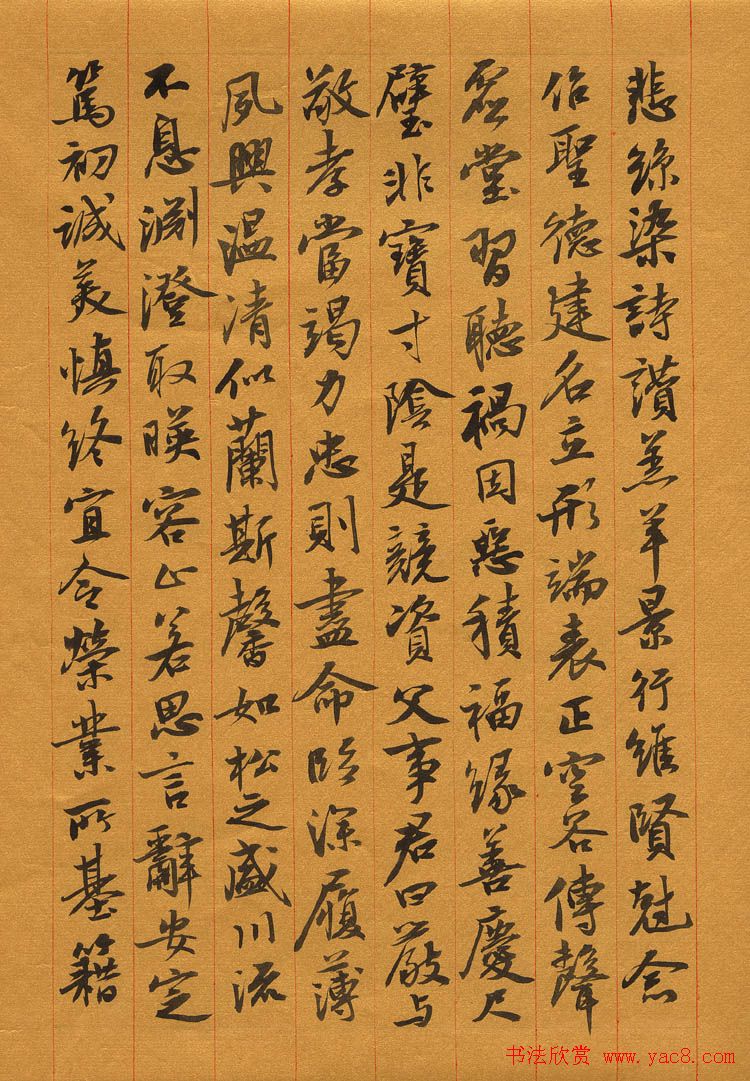 悲絲染詩讃羔羊景行維賢尅念
作聖德建名立形端表正空谷傳聲
虛堂習聽禍因惡積福緣善慶尺
璧非寶寸陰是競資父事君曰嚴与
敬孝當竭力忠則盡命臨深履薄
夙興温清似蘭斯馨如松之盛川流
不息淵澄取暎容止若思言辭安定
篤初誠美慎終宜令榮業所基籍
书法欣赏 www.yac8.com